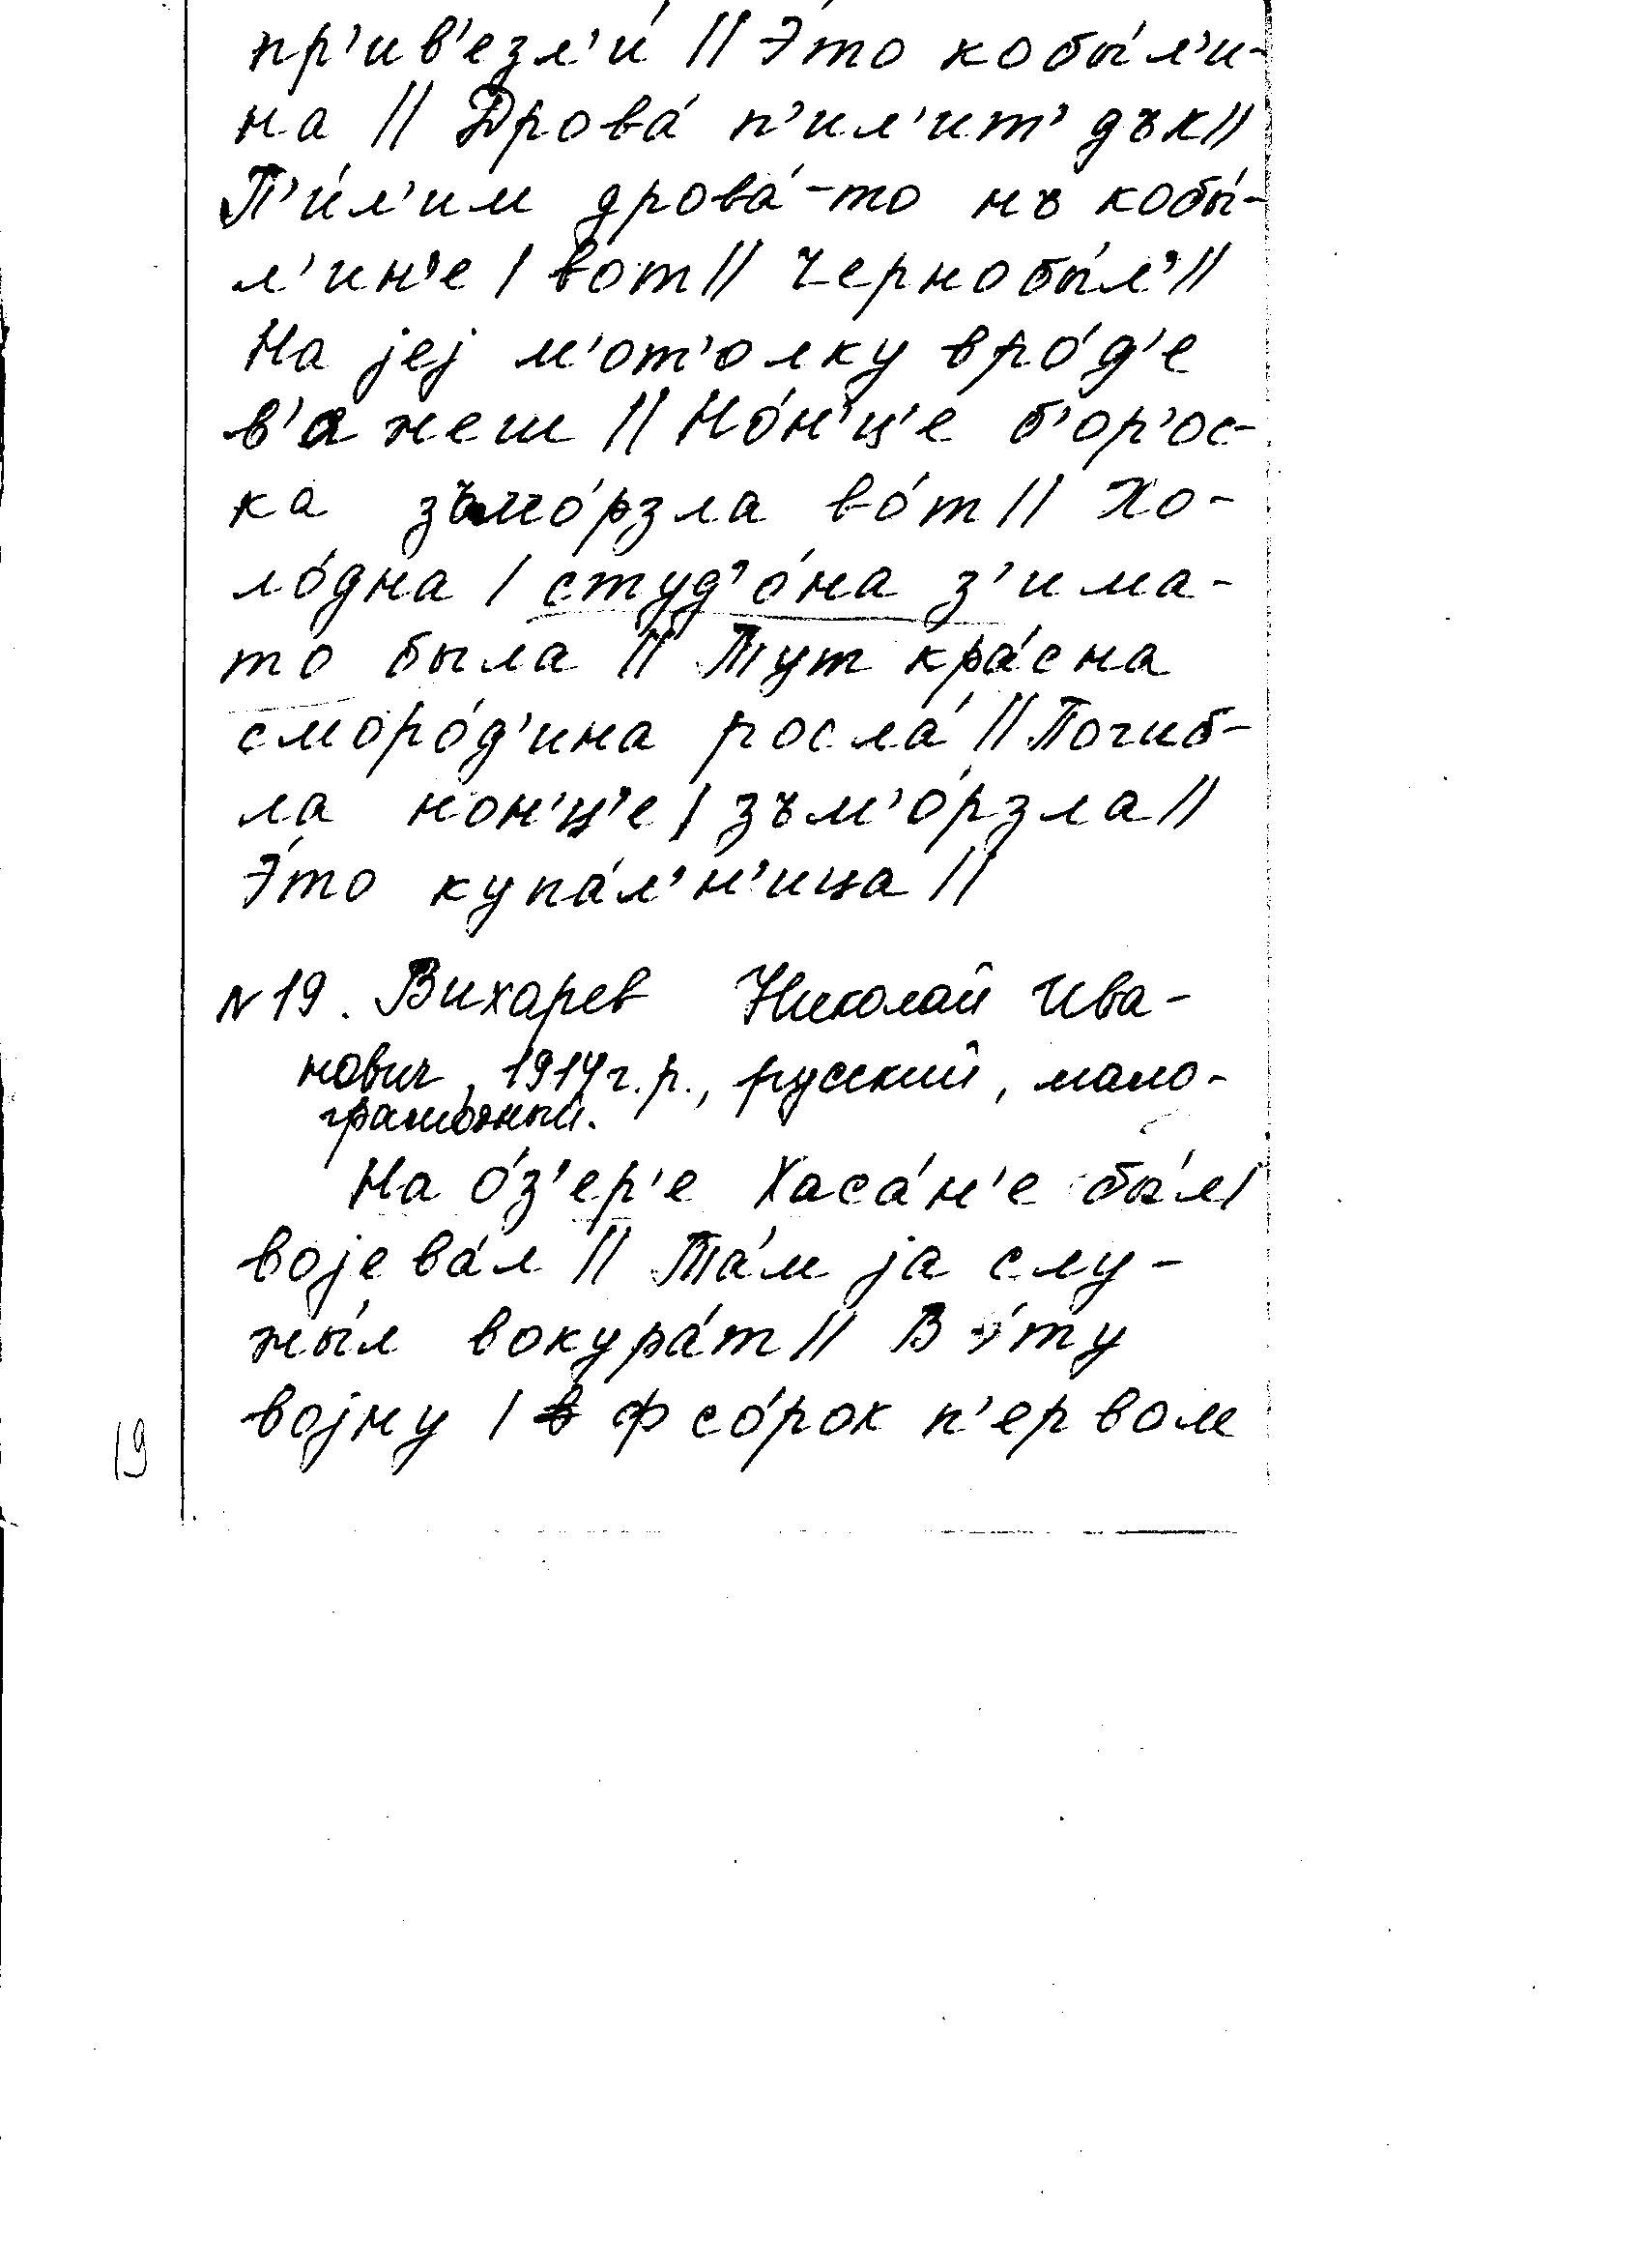 пр'ив'езл'и́ || Э́то кобы́л'и-
на || Дрова́ п'ил'ит' дък ||
П'и́л'им дрова́-то нъ кобы́-
л'ин'е | вот || Чернобы́л' ||
На jej м'от'олку вро́д'е
в'ажеш || Но́н'ц'е б'ор'ос-
ка зъмо́рзла во́т || Хо-
ло́дна | студ'о́на з'има-
то была || Тут кра́сна
сморо́д'ина росла́ || Погиб-
ла нон'ц'е | зъм'о́рзла ||
Э́то купа́л'н'ица ||
N 19. Вихарев Николай Ива-
нович, 1914 г.р., русский, мало-
грамотный.
На о́з'ер'е Хаса́н'е бы́л |
војева́л || Та́м ја слу-
жы́л вокура́т || В э́ту
војну | ф со́рок п'ервом
19